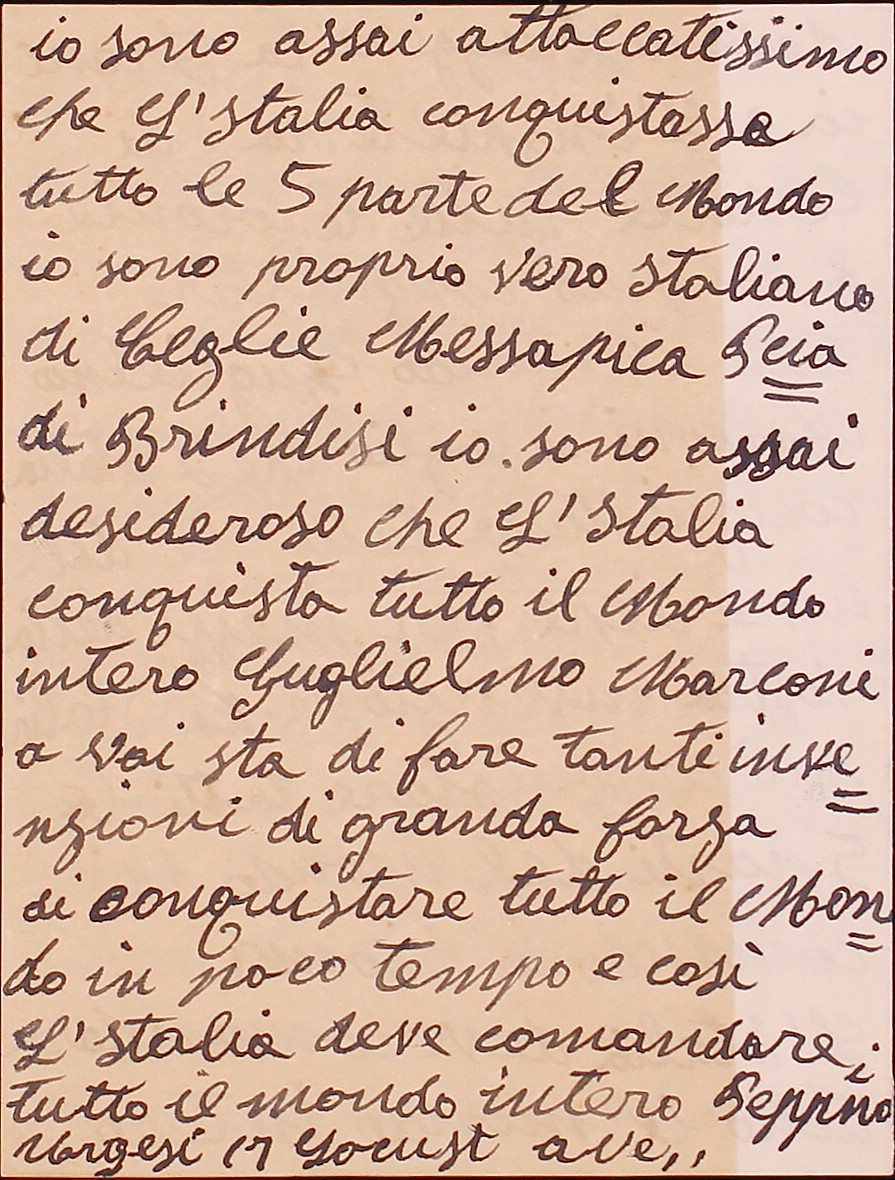 io sono assai attaccatissimo
che L'Italia conquistassa
tutto le 5 parte del Mondo
io sono proprio vero Italiano
di Ceglie Messapica Pcia
di Brindisi io. sono assai
desideroso che L'Italia
conquista tutto il Mondo
intero Guglielmo Marconi
a voi sta di fare tanti inve
nzioni di granda forza
di conquistare tutto il Mon
do in poco tempo e così
L'Italia deve comandare
tutto il mondo intero Peppino
Urgesi 17 Locust ave,,